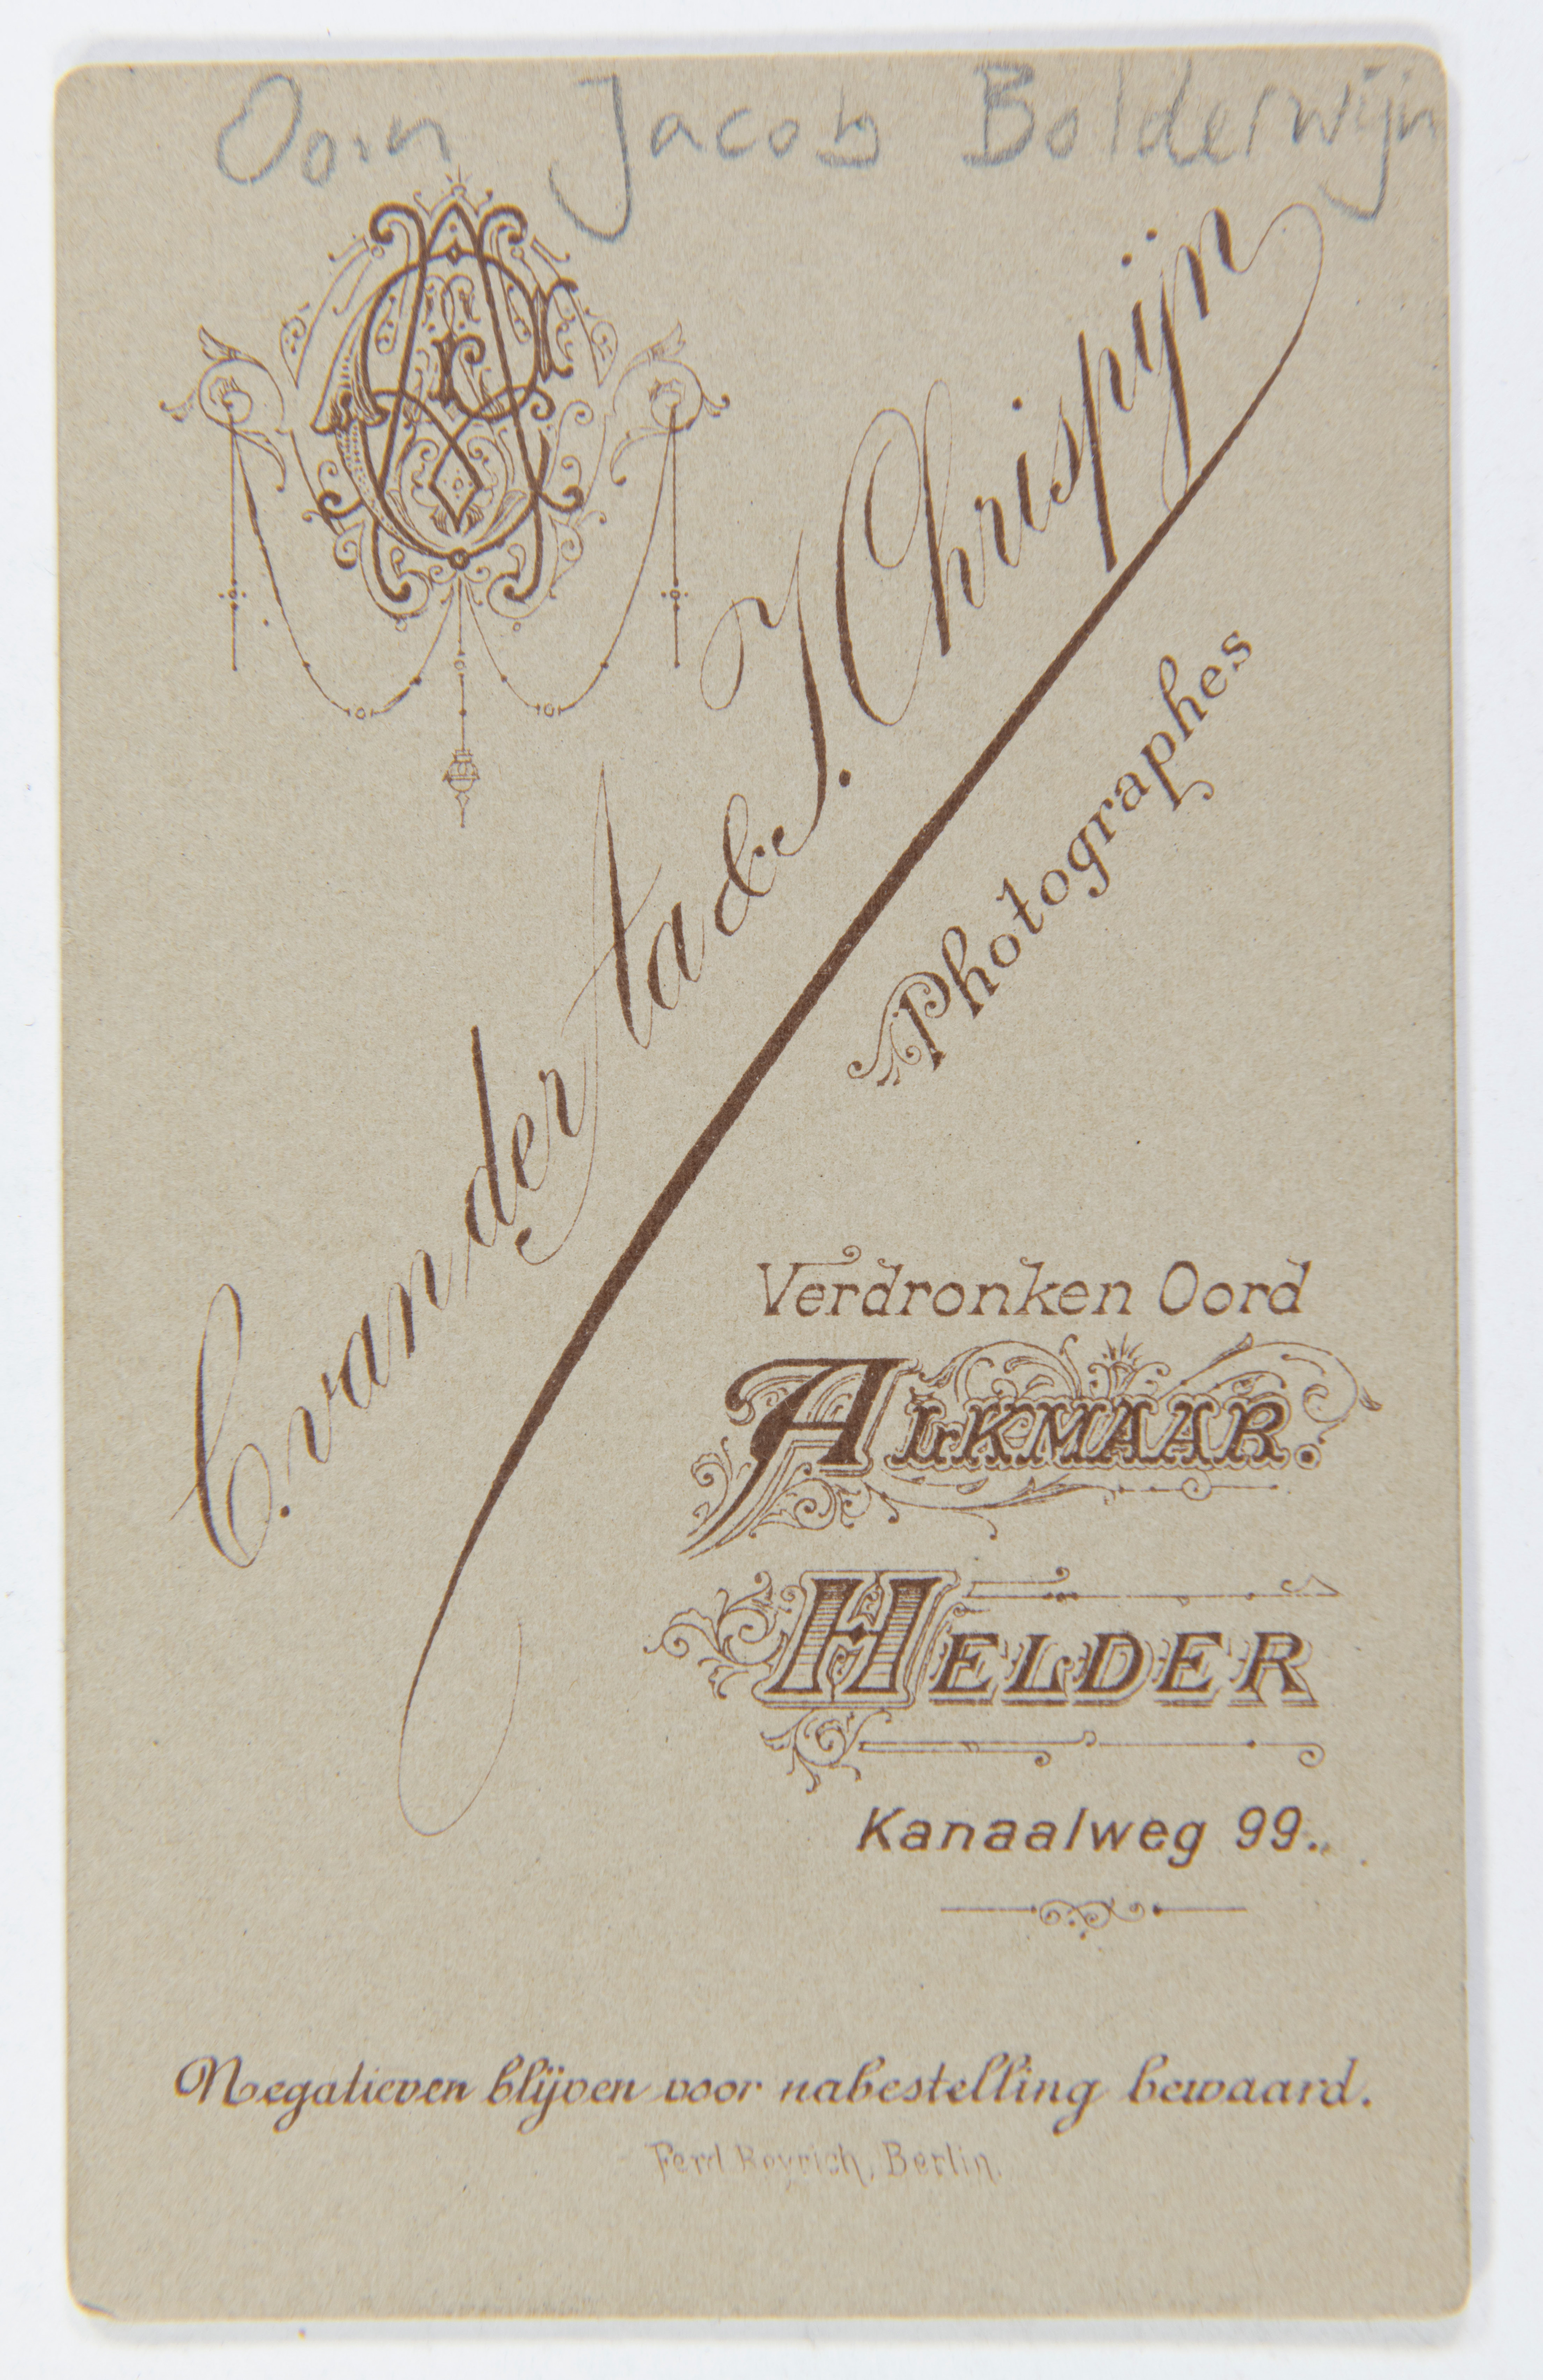 Oom Jacob Bolderwijn
C. van der Aa & J. Chrispijn
Photographes
Verdronken Oord
ALKMAAR.
HELDER
Kanaalweg 99.
Negatieven blijven voor nabestelling bewaard.
Ferd. Beyrich, Berlin.